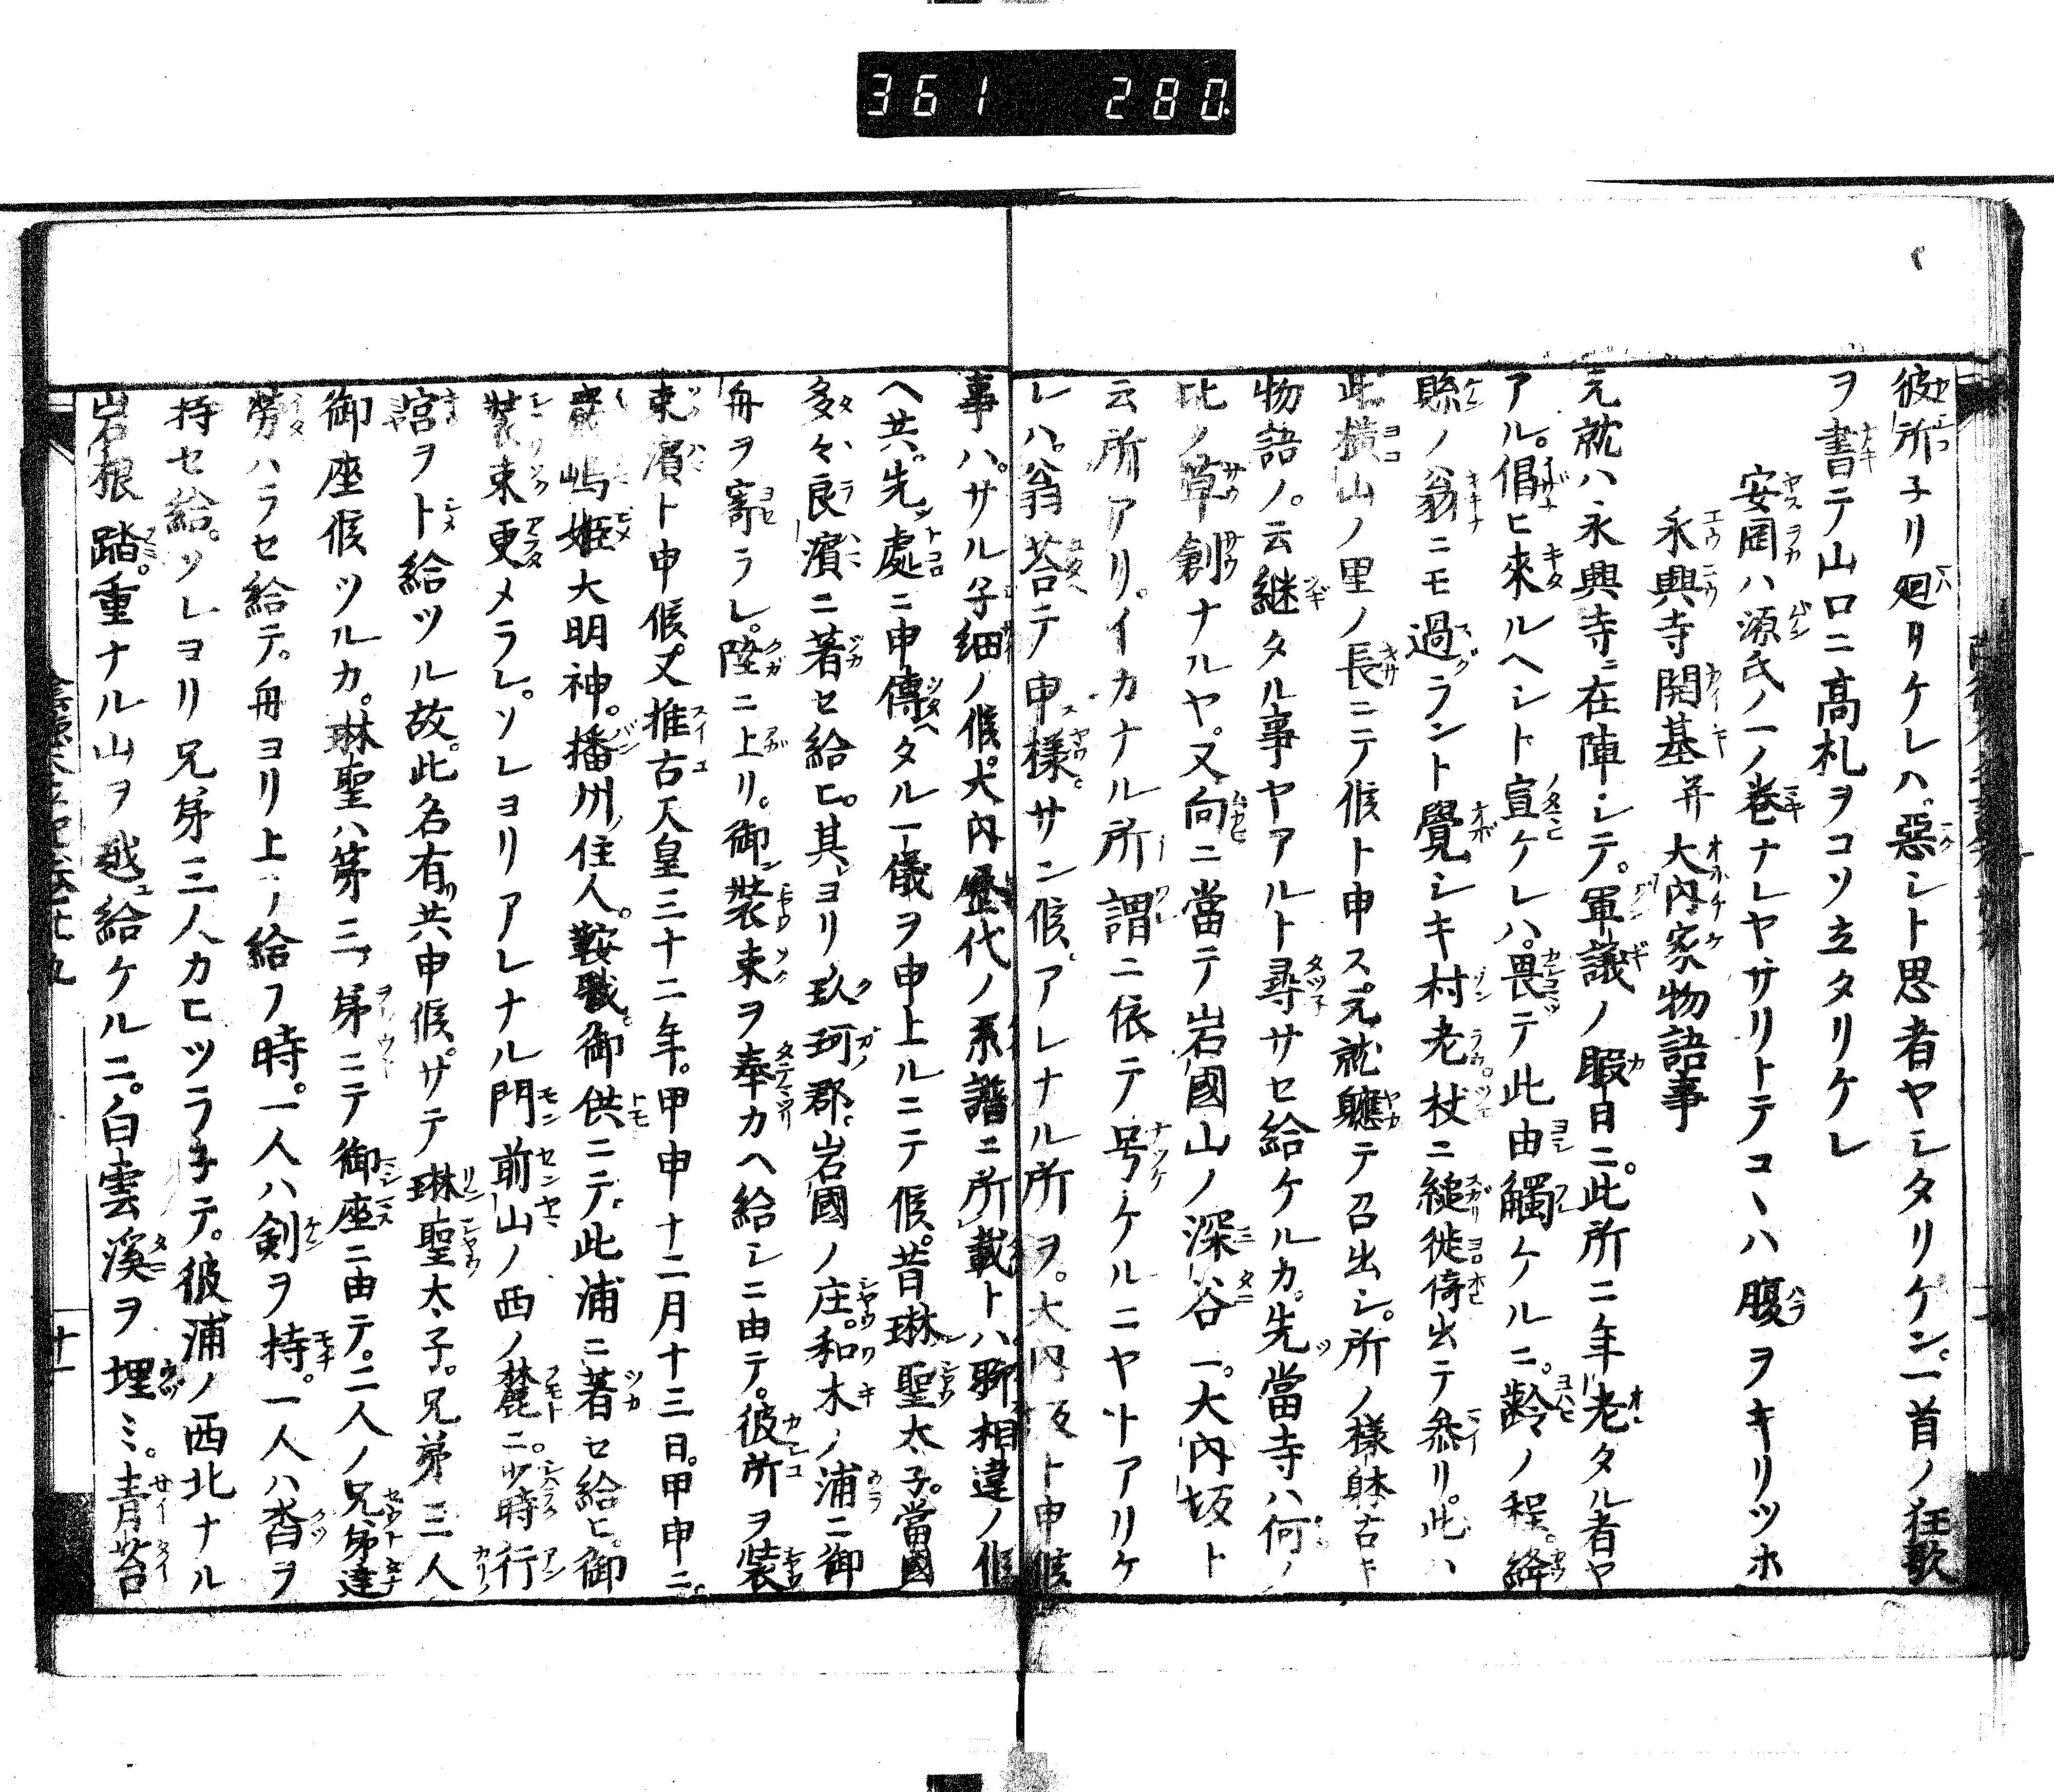 361 280
彼所ヨリ廻リケレハ。惡シト思者ヤシタリケン。一首ノ狂歌
ヲ書テ山口ニ高札ヲコソ立タリケレ
安岡ハ源氏ノ一ノ巻ナレヤサリトテコヽハ腹ヲキリツホ
永興寺開基并大内家物語事
元就ハ永興寺ニ在陣シテ。軍議ノ暇日ニ。此所ニ年老タル者ヤ
アル。倡ヒ來ルヘシト宣ケレハ。畏テ此由觸ケルニ。齢ノ程。絳
縣ノ翁ニモ過ラント覺シキ村老杖ニ縋徙倚出テ参リ。此ハ
此横山ノ里ノ長ニテ候ト申ス。元就軈テ召出シ。所ノ様躰古ト
物語ノ。云継タル事ヤアルト尋サセ給ケルカ。先當寺ハ何ノ
比ノ草創ナルヤ。又向ニ當テ岩國山ノ深谷一。大内坂ト
云所アリ。イカナル所謂ニ依テ号ケルニヤトアリケ
レハ。翁荅テ申様。サン候。アレナル所ヲ。大内坂ト申候
事ハ。サル子細ノ候。大内歴代ノ系譜ニ所載トハ。聊相違ノ候
ヘ共。先處ニ申傳ヘタル一儀ヲ申上ルニテ候。昔琳聖太子。當國
多々良濱ニ著セ給ヒ。其ヨリ玖珂郡。岩國ノ庄。和木ノ浦ニ御
舟ヲ寄ラレ。陸ニ上リ。御装束ヲ奉カヘ給シニ由テ。彼所ヲ装
束濱ト申候。又推古天皇三十二年。甲申十二月十三日。甲申ニ。
嚴嶋姫大明神。播州ノ住人。鞍職。御供ニテ。此浦ニ著セ給ヒ。御
装束更メラレ。ソレヨリアレナル門前山ノ西ノ麓ニ。少時行
宮ヲト給ツル故。此名有共申候。サテ琳聖太子。兄弟三人
御座候ツルカ。琳聖ハ第三ノ弟ニテ御座ニ由テ。二人ノ兄弟達
勞ハラセ給テ。舟ヨリ上ノ給フ時。一人ハ剣ヲ持。一人ハ沓ヲ
持セ給。ソレヨリ兄弟三人カヒツラ子テ。彼浦ノ西北ナル
岩根踏。重ナル山ヲ越給ケルニ。白雲溪ヲ埋ミ。青苔
十一